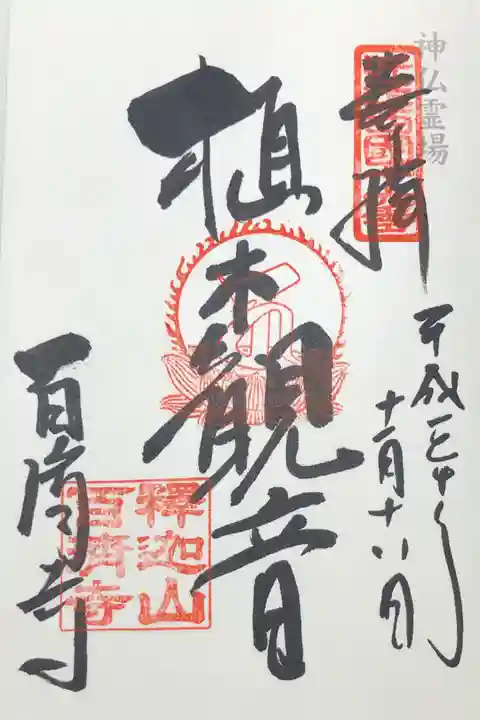 神仏霊場
奉拝
平成二七年
十一月十八日
植木観音
百済寺
釋迦山
百濟寺